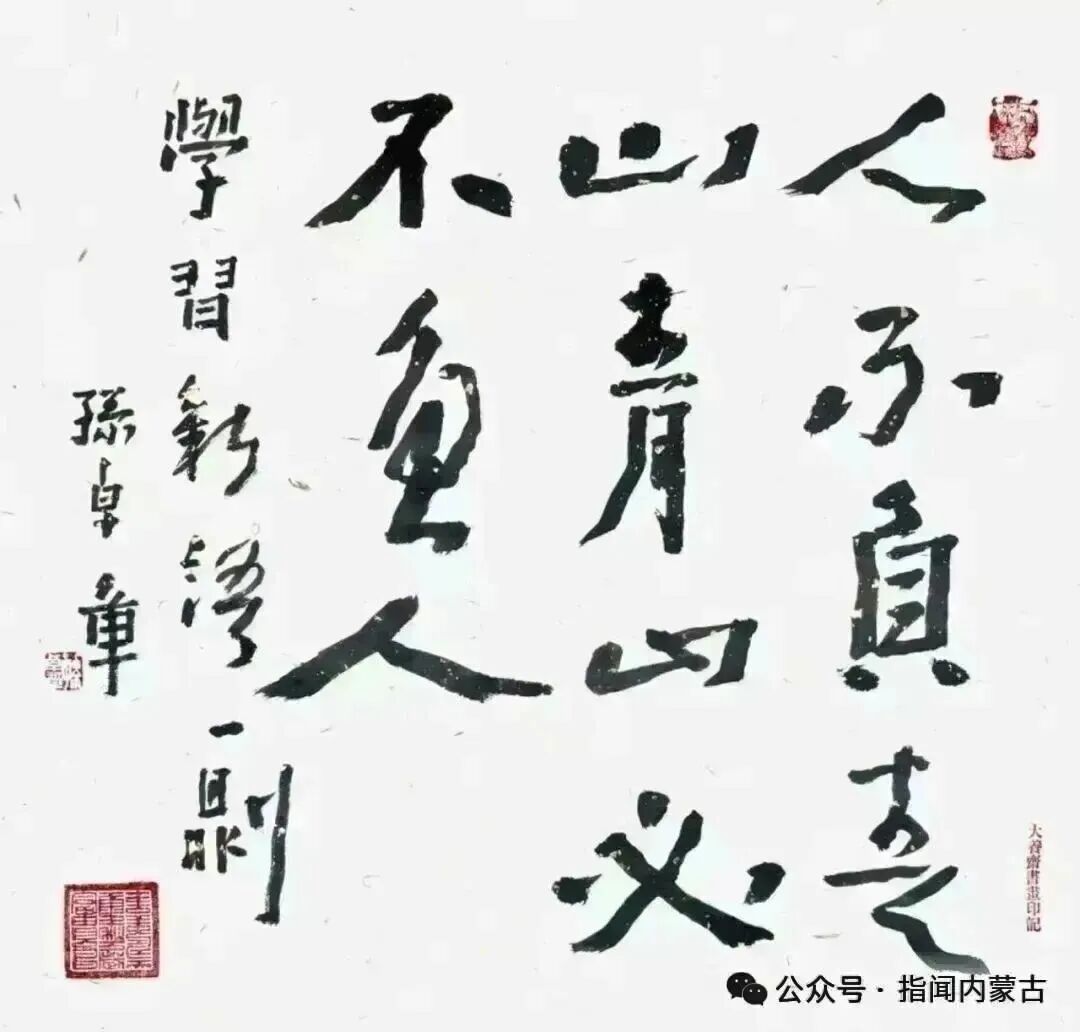 人不負青
山青山必
不負人
學習新語一則
孫卓章
大善齋書畫印記
公众号 · 指闻内蒙古